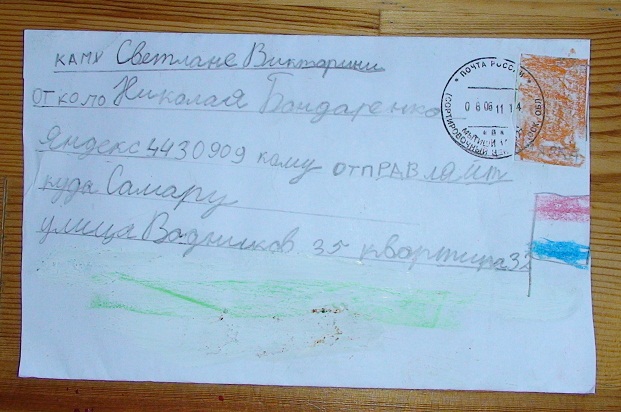 КАМУ Светлане Викторини
ОТ КОГО Николая Бондаренко
Яндекс 4430909 кому ОТПРАВЛЯИТ
куда Самару
улица Водников 35 квартира 32
ПОЧТА РОССИИ
0 8 08 11 1 4
(СОРТИРОВОЧНЫЙ